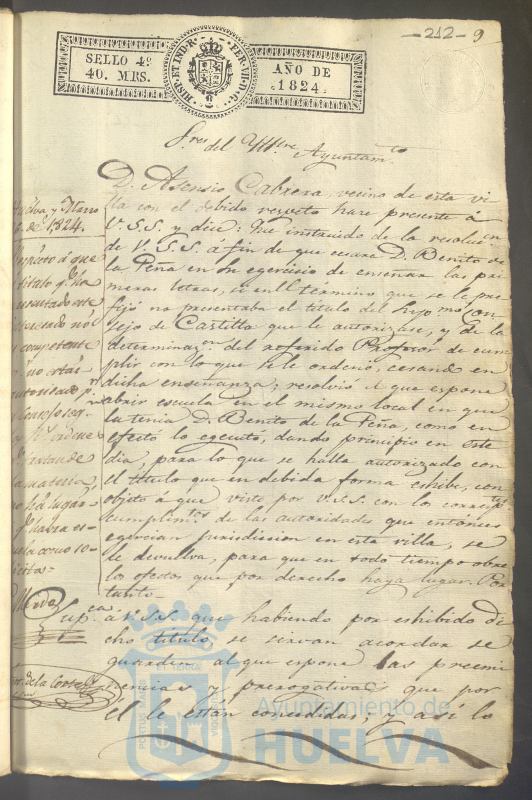 -212- 9
SELLO 4º
40. MRS.
HISP. ET IND. R. FER. VII. D. G.
AÑO DE
1824
Sres del Ylltre Ayuntamto
D. Asensio Cabrera, vecino de esta vi
lla con el debido respeto hace presente á
V.S.S. y dice: Que instruido de la resolucion
de V.S.S. á fin de que cesara D. Benito de
la Peña en su egercicio de enseñar las pri
meras letras, si en el término que se le pre
fijó no presentaba el título del Supmo Con
sejo de Castilla que le autorizase, y de la
determinacon del referido Profesor de cum
plir con lo que se le ordenó, cesando en
dicha enseñanza; resolvió el que espone
abrir escuela en el mismo local en que
la tenia D. Benito de la Peña, como en
efecto lo egecutó, dando principio en este
dia, para lo que se halla autorizado con
el título que en debida forma exhibe, con
objeto á que visto por V.S.S. con los correspondtes
cumplimtos de las autoridades que entonces
egercian jurisdiccion en esta villa, se
le devuelva, para que en todo tiempo obre
los efectos que por derecho haya lugar. Por
tanto
Supca á V.S.S. que habiendo por exhibido di
cho título se sirvan acordar se
guarden al que espone las preemi
nencias y prerogativas que por
él le estan concedidas; y asi lo
Huelva y Marzo
de 1824.
Respecto á que
título q. ha
presentado este
interesado no es
competente
no está
autorizado pr
Consejo seg.
ordene
tratan de
la materia,
no há lugar
q. habra es
cuela como so
licita
Ayuntamiento de
HUELVA